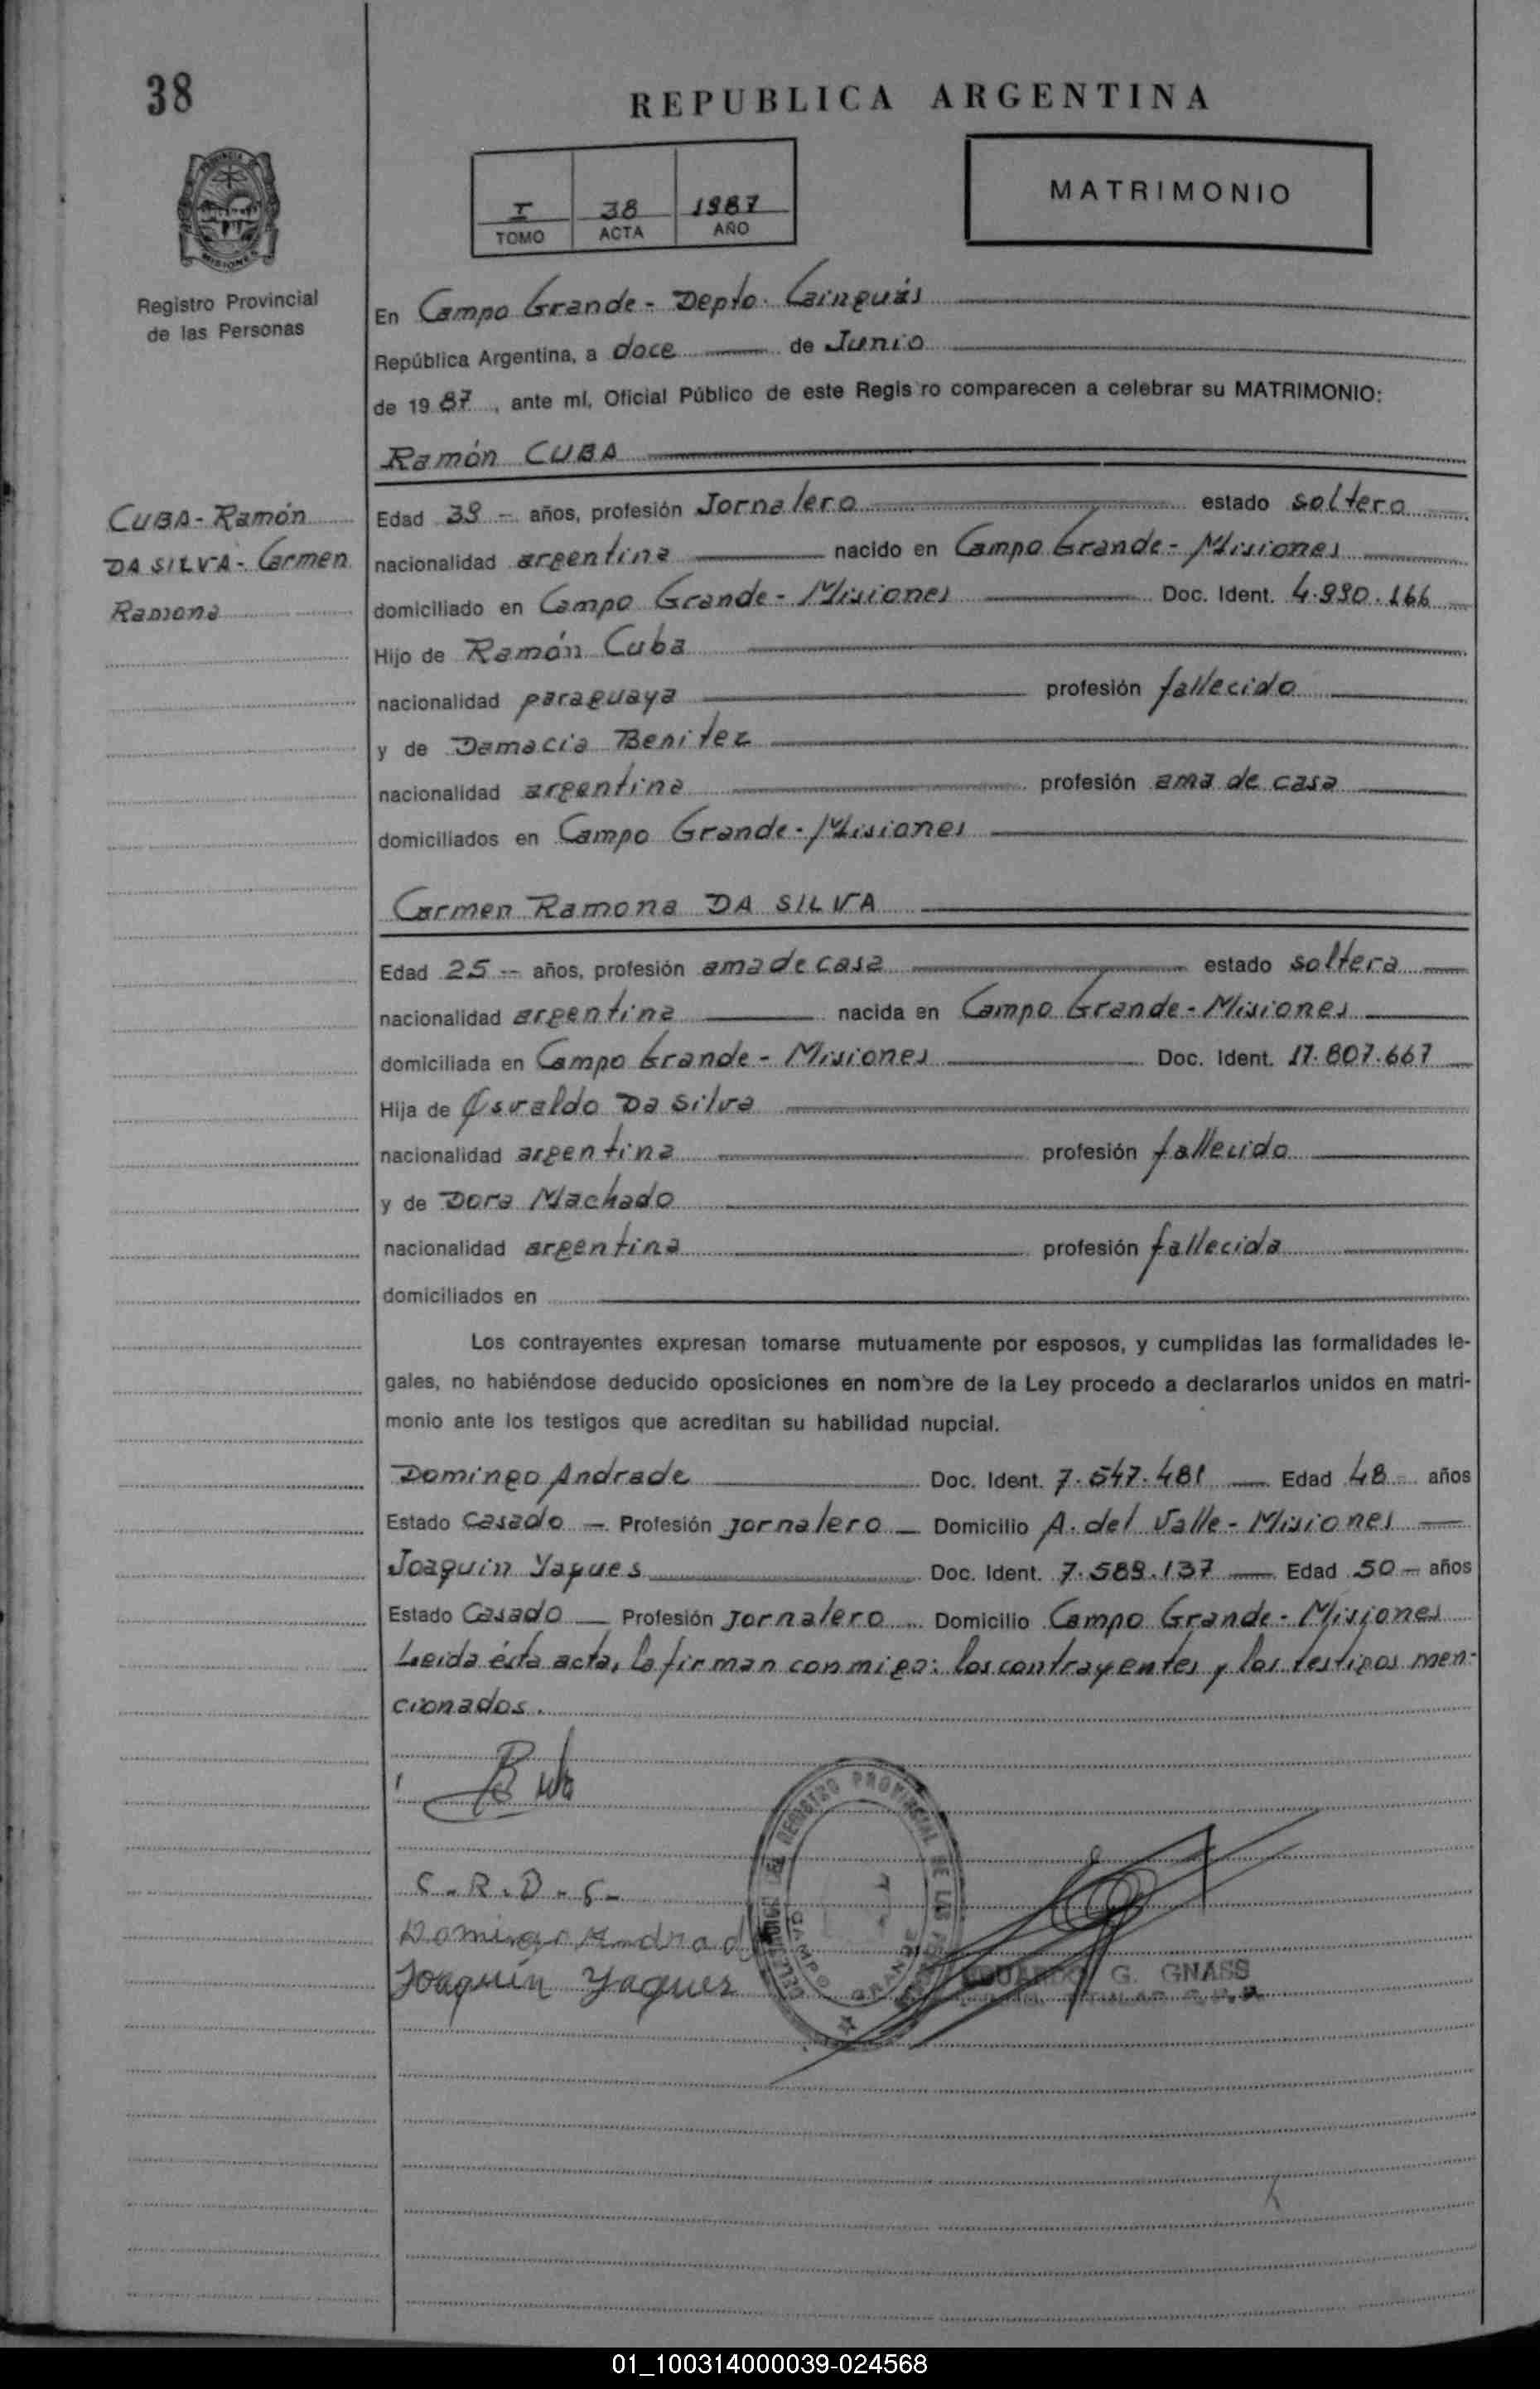 38
REPUBLICA ARGENTINA
I 38 1987
TOMO ACTA AÑO
MATRIMONIO
PROVINCIA DE
MISIONES
Registro Provincial
de las Personas
En Campo Grande - Depto. Cainguás
República Argentina, a doce de Junio
de 1987, ante mí, Oficial Público de este Regis ro comparecen a celebrar su MATRIMONIO:
Ramón CUBA
CUBA - Ramón
DA SILVA - Carmen
Ramona
Edad 39 - años, profesión Jornalero estado soltero
nacionalidad argentina nacido en Campo Grande - Misiones
domiciliado en Campo Grande - Misiones Doc. Ident. 4.990.166
Hijo de Ramón Cuba
nacionalidad paraguaya profesión fallecido
y de Damacia Benitez
nacionalidad argentina profesión ama de casa
domiciliados en Campo Grande - Misiones
Carmen Ramona DA SILVA
Edad 25 -- años, profesión ama de casa estado soltera
nacionalidad argentina nacida en Campo Grande - Misiones
domiciliada en Campo Grande - Misiones Doc. Ident. 17.807.667
Hija de Osvaldo Da Silva
nacionalidad argentina profesión fallecido
y de Dora Machado
nacionalidad argentina profesión fallecida
domiciliados en
Los contrayentes expresan tomarse mutuamente por esposos, y cumplidas las formalidades le-
gales, no habiéndose deducido oposiciones en nombre de la Ley procedo a declararlos unidos en matri-
monio ante los testigos que acreditan su habilidad nupcial.
Domingo Andrade Doc. Ident. 7.547.481 Edad 48 años
Estado Casado - Profesión jornalero - Domicilio A. del Valle - Misiones
Joaquin Yaques Doc. Ident. 7.589.137 Edad 50 - años
Estado Casado - Profesión Jornalero - Domicilio Campo Grande - Misiones
Leida ésta acta, la firman conmigo: los contrayentes y los testigos men-
cionados.
C.R.D.S.
Domingo Andrade
Joaquín Yaques
REGISTRO PROVINCIAL DE LAS
CAMPO GRANDE
EDUARDO G. GNASS
TITULAR
01_100314000039-024568